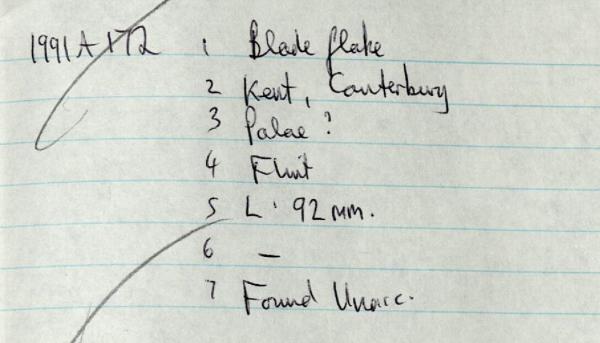 1991A172 1 Blade flake
2 Kent, Canterbury
3 Palae ?
4 Flint
5 L. 92 mm.
6 —
7 Found Unacc.